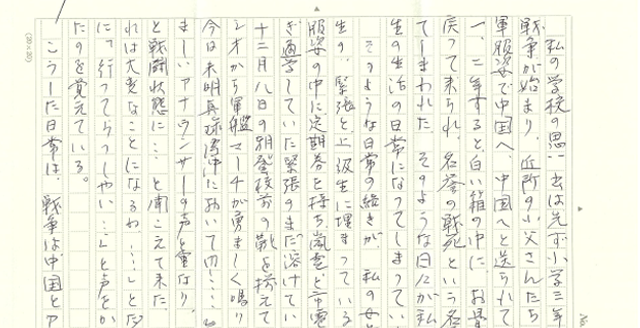 私の学校の思い出は先ず小学三年
戦争が始まり、近所の小父さんたち
軍服姿で中国へ、中国へと送られて
一、二年すると白い箱の中に、お骨
戻って来られ、名誉の戦死という名
てしまわれた。そのような日々が私
生の生活の日常になってしまってい
そのような日常の続きが、私の女
生の、緊張と、上級生に埋まっている
服姿の中に定期券を持ち嵐
ぎ通学していた緊張のまだ溶けてい
十二月八日の朝登校前の靴を揃えて
ジオから軍艦マーチが勇ましく鳴り
今日未明真珠湾において
ましいアナウンサーの声と重なり、
と戦闘状態に…と聞こえて来た。
れは大変なことになるわ…」と
に行ってらっしゃい…」と声をか
たのを覚えている。
こうした日常は、戦争は中国とア
(20×20)